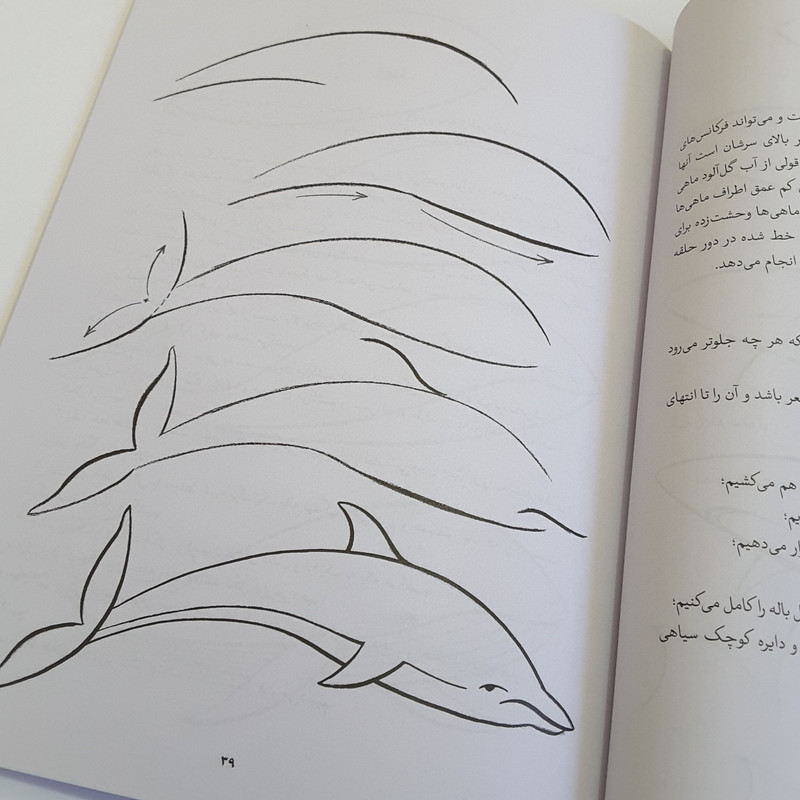 ت و می‌تواند فرکانس‌های
ر بالای سرشان است آنها
قولی از آب گل‌آلود ماهی
کم عمق اطراف ماهی‌ها
ماهی‌ها وحشت‌زده برای
خط شده در دور حلقه
انجام می‌دهد.
که هر چه جلوتر می‌رود
عر باشد و آن را تا انتهای
هم می‌کشیم؛
یم؛
ار می‌دهیم؛
ل باله را کامل می‌کنیم؛
و دایره کوچک سیاهی
۳۹